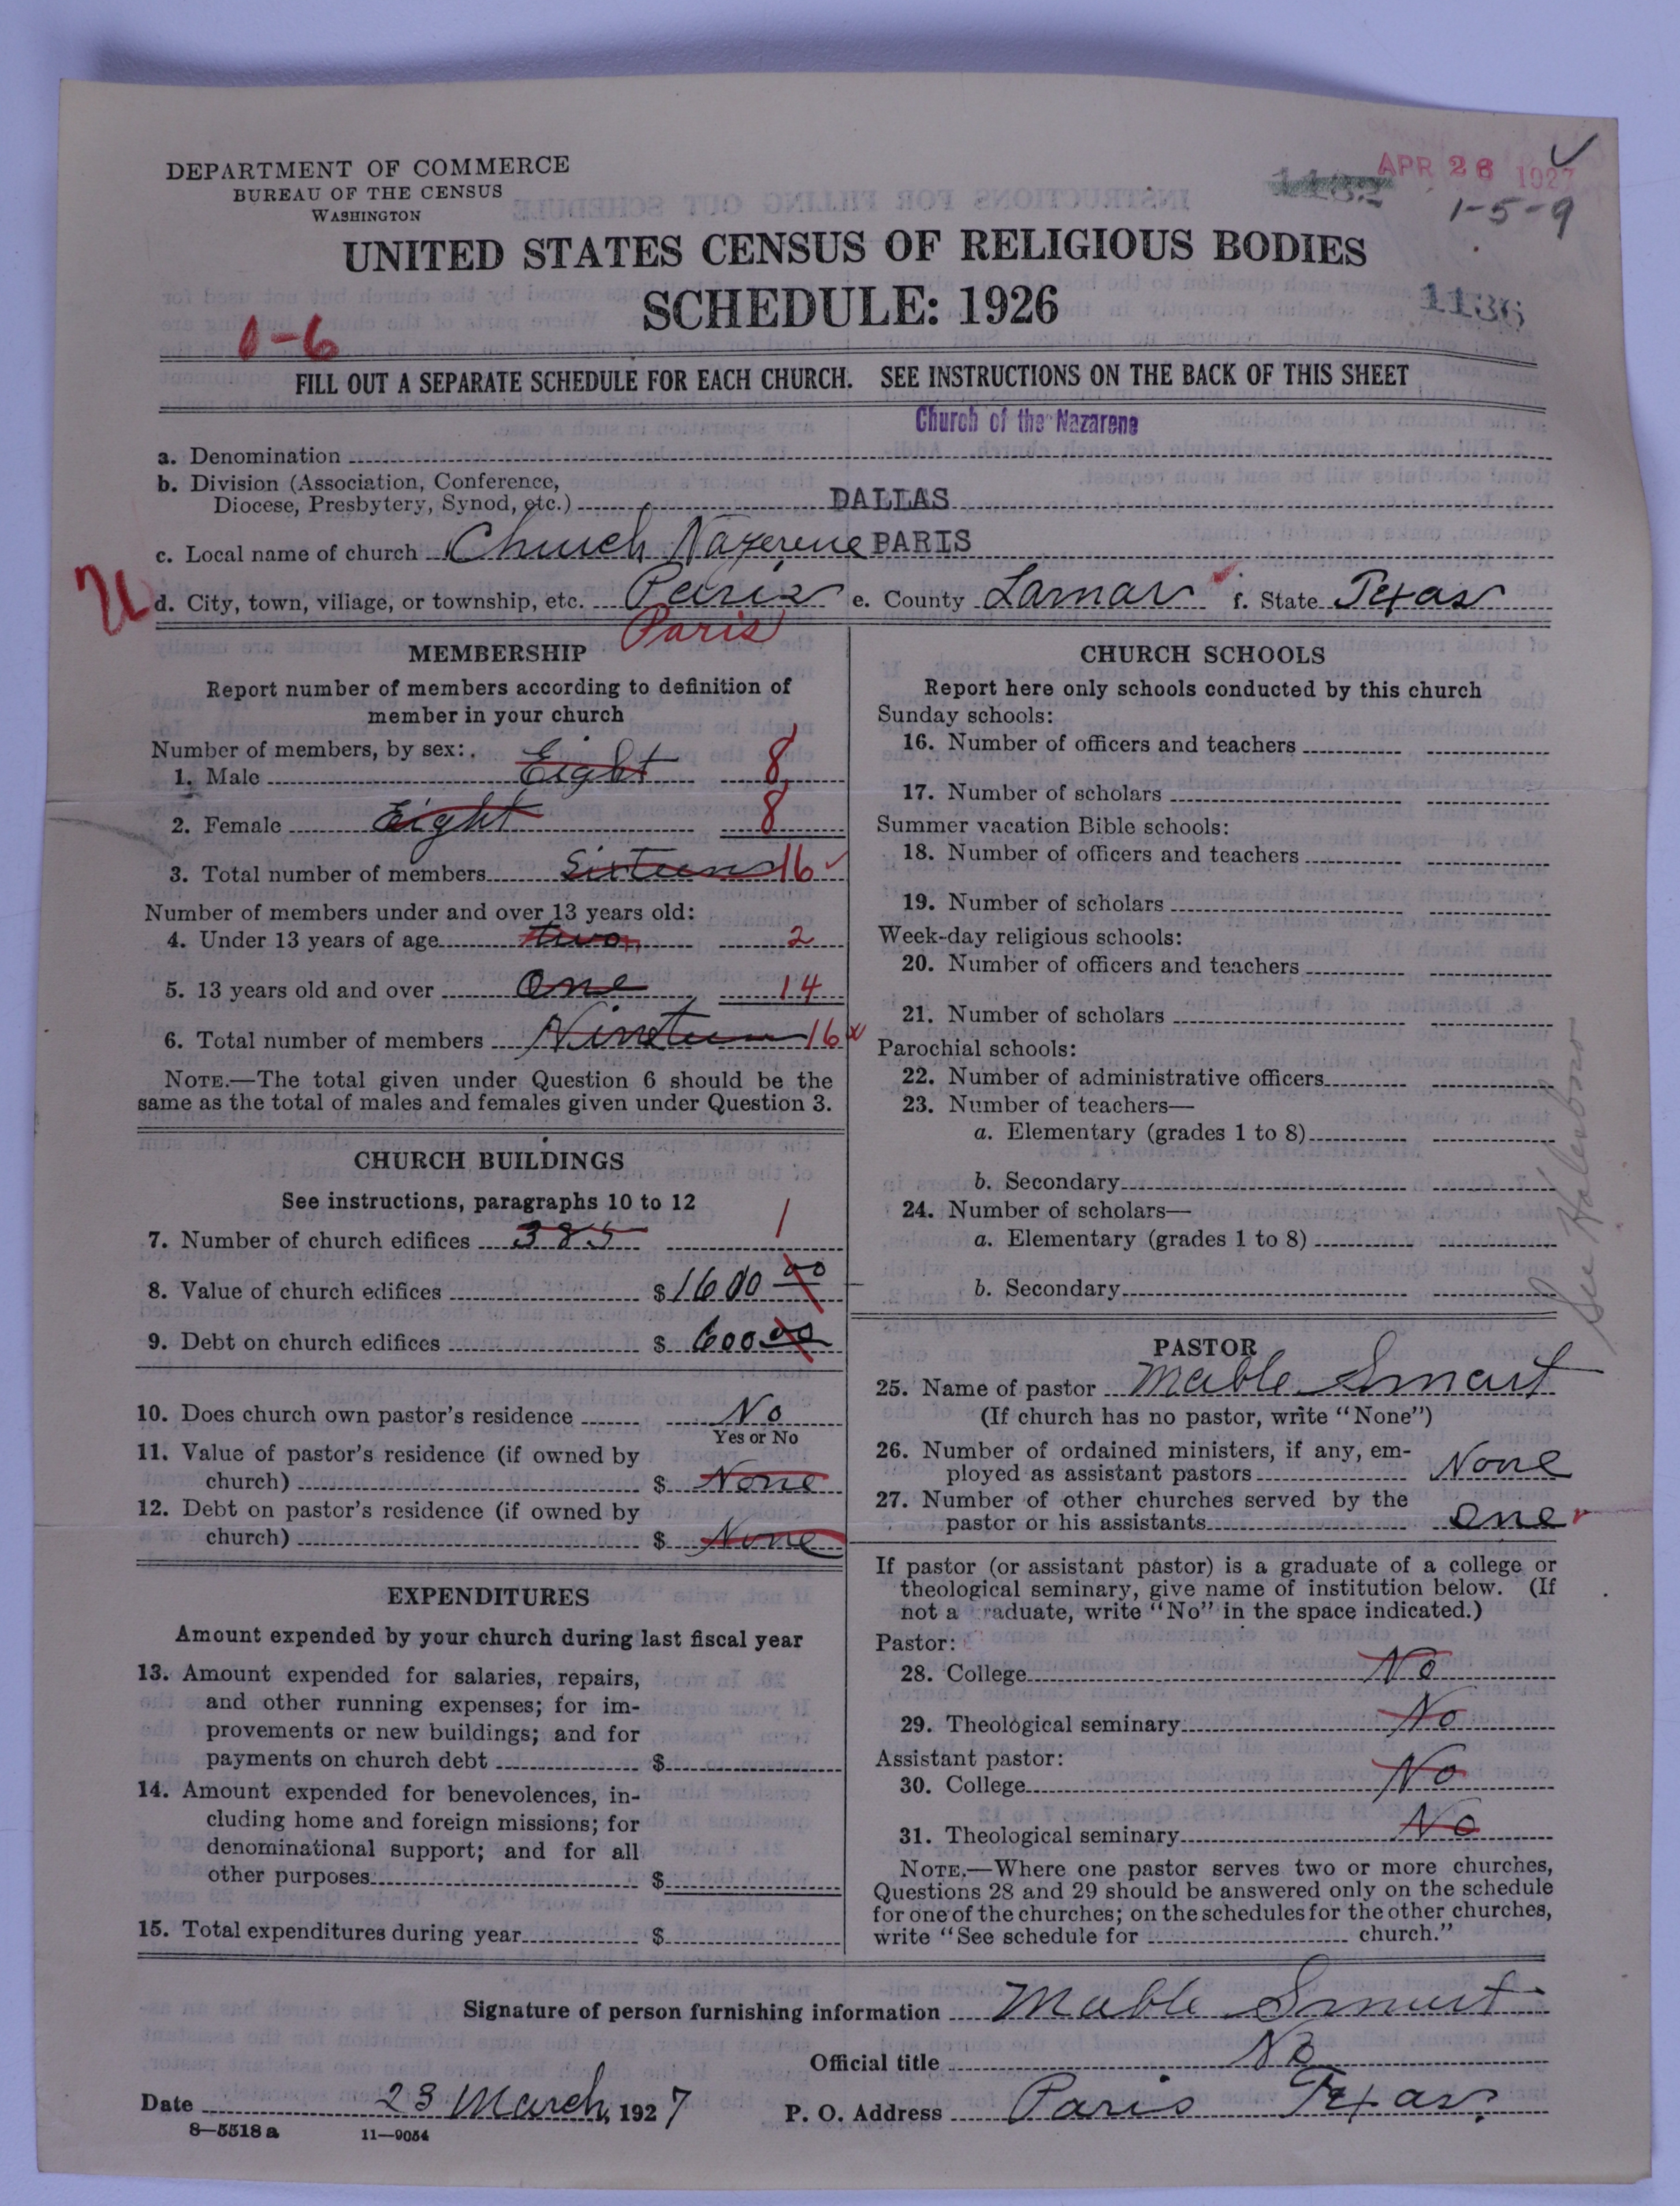 DEPARTMENT OF COMMERCE
BUREAU OF THE CENSUS
WASHINGTON
APR 26 1927
1-5-9
UNITED STATES CENSUS OF RELIGIOUS BODIES
SCHEDULE: 1926
1136
1-6
FILL OUT A SEPARATE SCHEDULE FOR EACH CHURCH. SEE INSTRUCTIONS ON THE BACK OF THIS SHEET
Church of the Nazarene
a. Denomination
b. Division (Association, Conference,
Diocese, Presbytery, Synod, etc.) DALLAS
c. Local name of church Church Nazerene PARIS
U d. City, town, village, or township, etc. Paris e. County Lamar f. State Texas
Paris
MEMBERSHIP
Report number of members according to definition of
member in your church
Number of members, by sex:
1. Male Eight 8
2. Female Eight 8
3. Total number of members Sixteen 16
Number of members under and over 13 years old:
4. Under 13 years of age two 2
5. 13 years old and over One 14
6. Total number of members Nineteen 16
NOTE.—The total given under Question 6 should be the
same as the total of males and females given under Question 3.
CHURCH BUILDINGS
See instructions, paragraphs 10 to 12
7. Number of church edifices 385 1
8. Value of church edifices $1600 00
9. Debt on church edifices $ 600 00
10. Does church own pastor's residence No
Yes or No
11. Value of pastor's residence (if owned by
church) $ None
12. Debt on pastor's residence (if owned by
church) $ None
EXPENDITURES
Amount expended by your church during last fiscal year
13. Amount expended for salaries, repairs,
and other running expenses; for im-
provements or new buildings; and for
payments on church debt $
14. Amount expended for benevolences, in-
cluding home and foreign missions; for
denominational support; and for all
other purposes $
15. Total expenditures during year $
CHURCH SCHOOLS
Report here only schools conducted by this church
Sunday schools:
16. Number of officers and teachers
17. Number of scholars
Summer vacation Bible schools:
18. Number of officers and teachers
19. Number of scholars
Week-day religious schools:
20. Number of officers and teachers
21. Number of scholars
Parochial schools:
22. Number of administrative officers
23. Number of teachers—
a. Elementary (grades 1 to 8)
b. Secondary
24. Number of scholars—
a. Elementary (grades 1 to 8)
b. Secondary
See
PASTOR
25. Name of pastor Mable Smart
(If church has no pastor, write "None")
26. Number of ordained ministers, if any, em-
ployed as assistant pastors None
27. Number of other churches served by the
pastor or his assistants One
If pastor (or assistant pastor) is a graduate of a college or
theological seminary, give name of institution below. (If
not a graduate, write "No" in the space indicated.)
Pastor:
28. College No
29. Theological seminary No
Assistant pastor:
30. College No
31. Theological seminary No
NOTE.—Where one pastor serves two or more churches,
Questions 28 and 29 should be answered only on the schedule
for one of the churches; on the schedules for the other churches,
write "See schedule for church."
Signature of person furnishing information Mable Smart
Official title No
Date 23 March, 1927 P. O. Address Paris Texas.
8—5518 a 11—9054